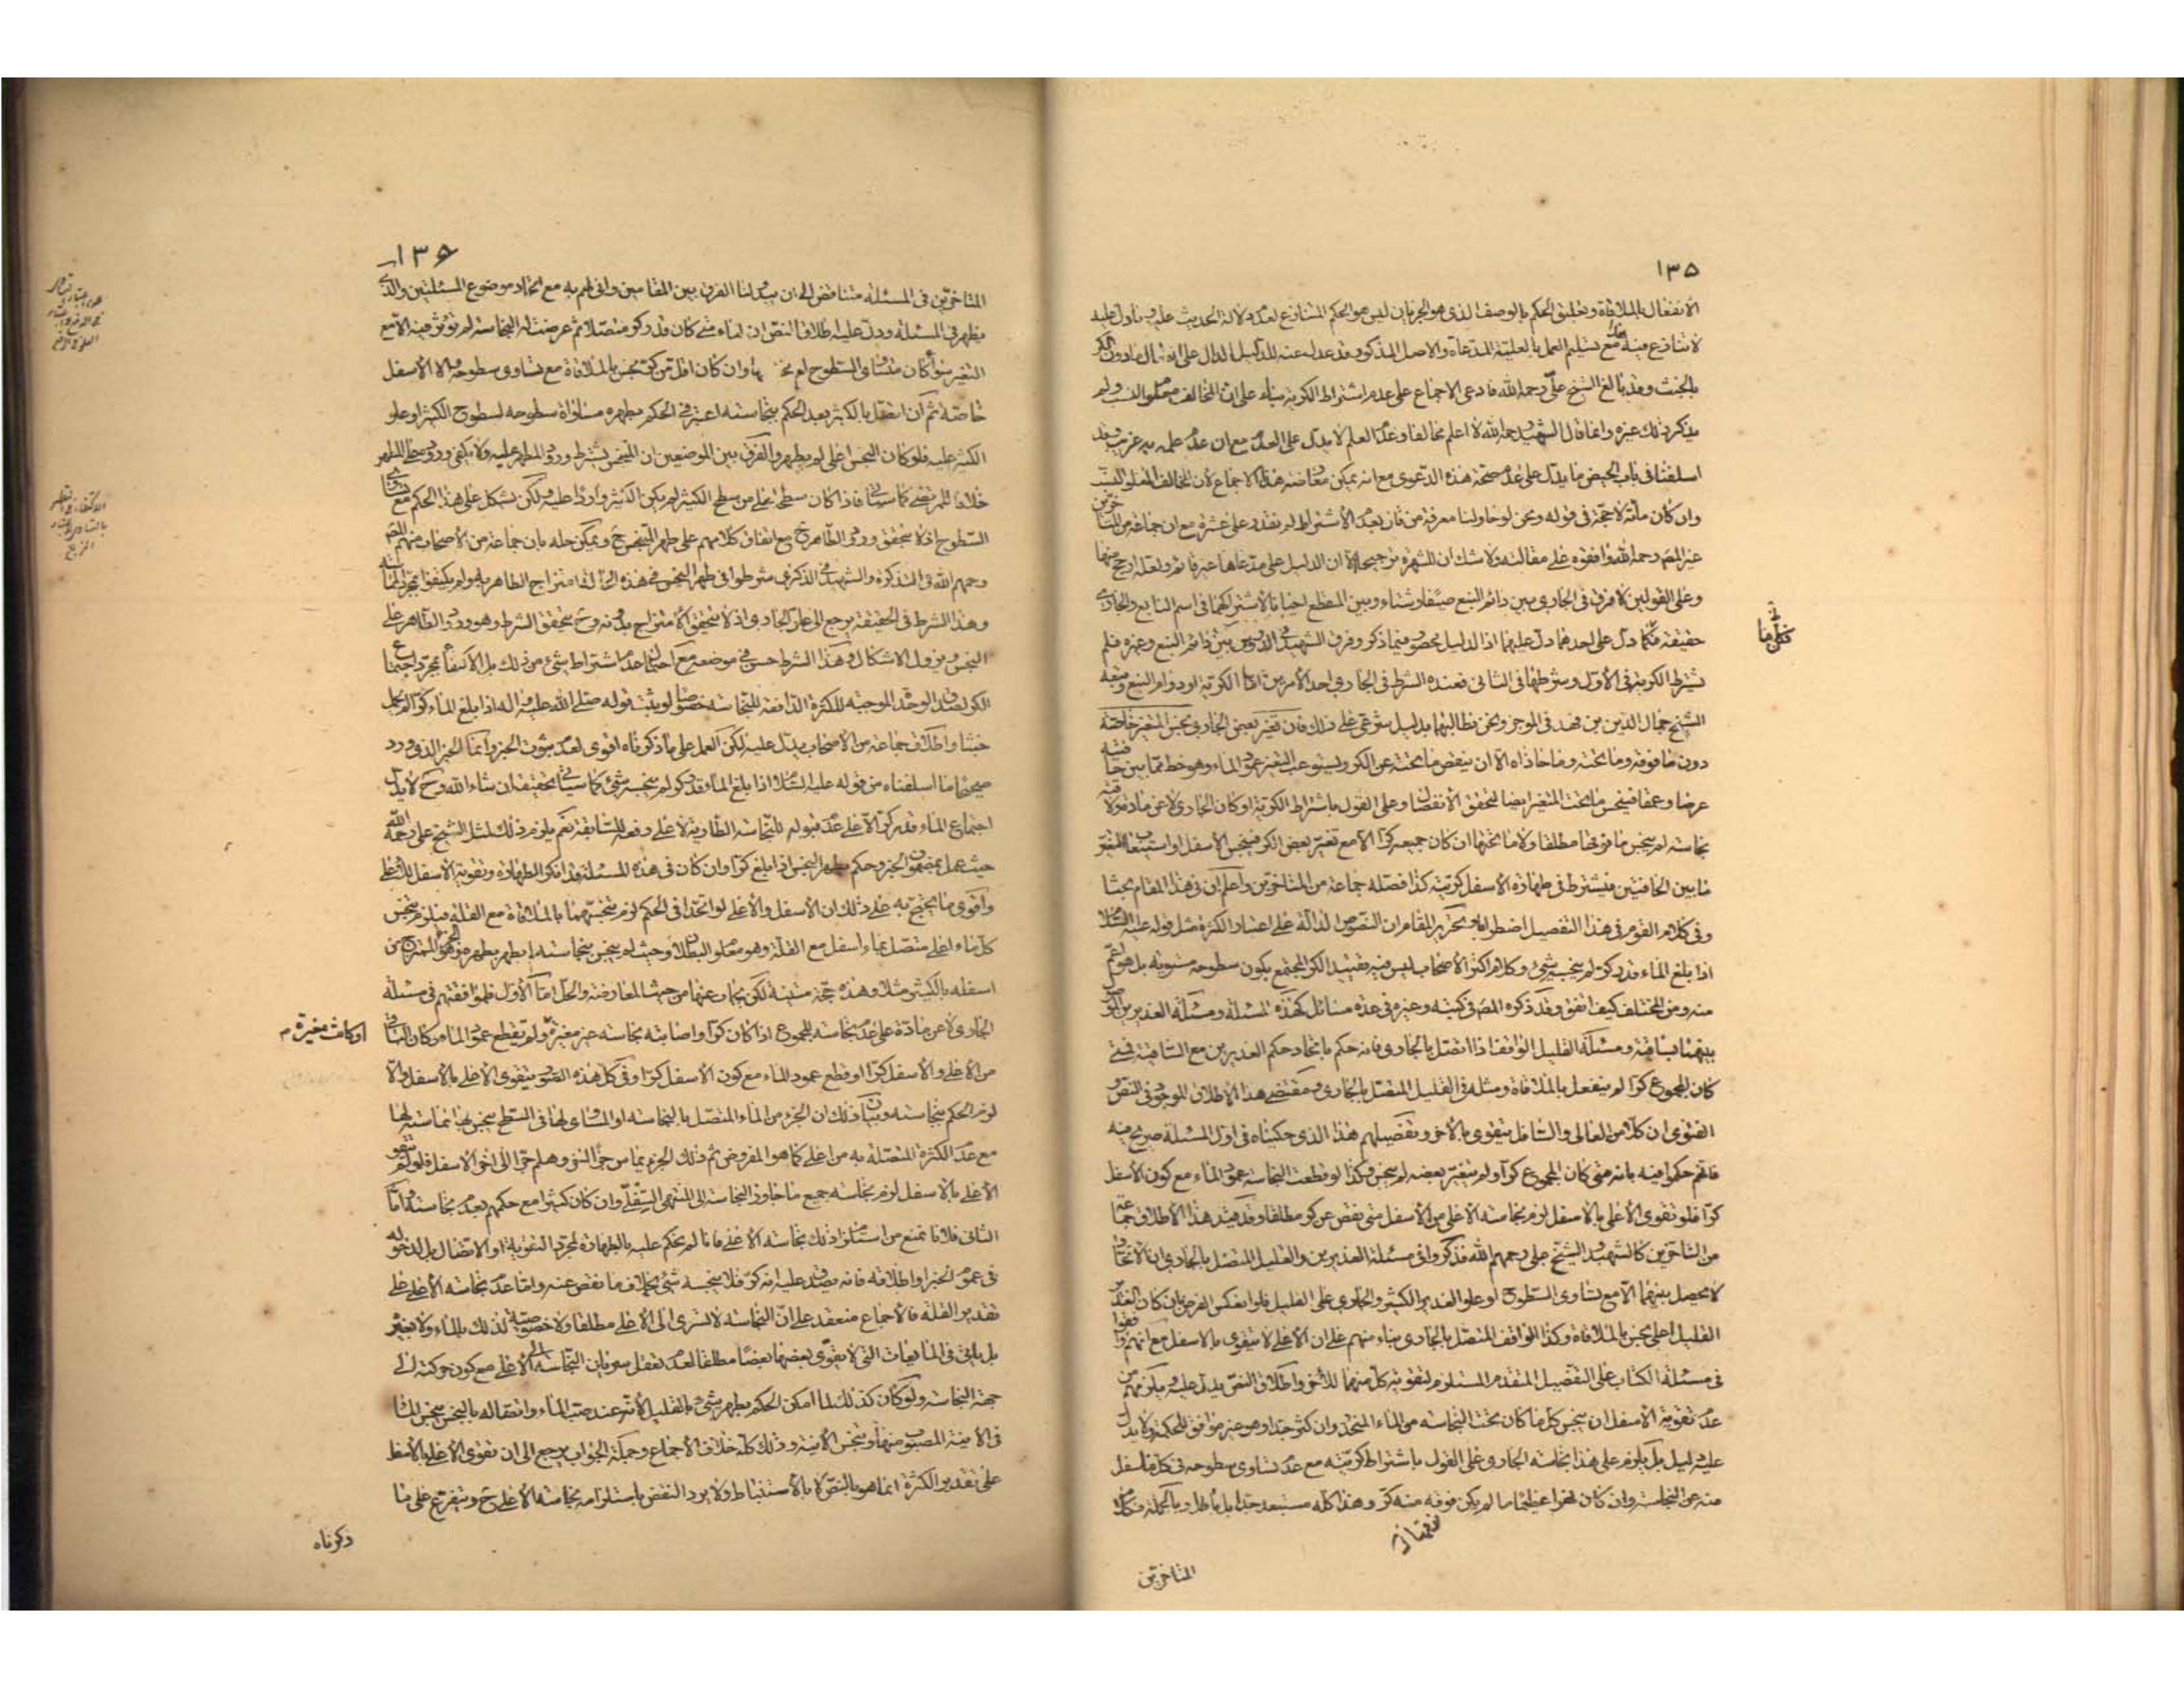 ١٣٥
الانفعال بالملاقاة وتعليق الحكم بالوصف الذي هو الجريان ليس هو الحكم المتنازع لعدم دلالة الحديث عليه وما دل عليه
لا تنازع فيه مع تسليم العمل بالعلية المدعاة والاصل المذكور قد عدل عنه للدليل الدال على انفعال مادون الكر
بالخبث وقد بالغ الشيخ علي رحمه الله فادعى الاجماع على عدم اشتراط الكرية بناء على ان المخالف معلوم النسب ولم
يذكر ذلك غيره وانما قال الشهيد رحمه الله لا اعلم مخالفا وعدم العلم لا يدل على العدم مع ان عدم علمه به غريب وقد
اسلفنا في باب الحيض ما يدل على عدم صحة هذه الدعوى مع انه يمكن معارضة هذا الاجماع لان المخالف المعلوم النسب
وان كان مائة لا حجة في قوله ونحن لو حاولنا معرفة من قال بعدم الاشتراط لم نقدر على عشرة مع ان جماعة من المتاخرين
غير المص رحمه الله وافقوه على مقالته ولا شك ان الشهرة مرجحة الا ان الدليل على مدعاها غير قائم ولعله ارجح منها
وعلى القولين لا فرق في الجاري بين دائم النبع صيفا وشتاء وبين المنقطع احيانا لاشتراكهما في اسم النابع والجاري
حقيقة فكلما دل على احدهما دل عليهما اذ الدليل محصور فيما ذكر وفرق الشهيد في الدروس بين دائم النبع وغيره فلم
يشترط الكرية في الاول وشرطها في الثاني فعنده الشرط في الجاري احد الامرين اما الكرية او دوام النبع وتبعه
الشيخ جمال الدين بن فهد في الموجز ونحن نطالبهما بدليل شرعي على ذلك فان تغير بعض الجاري نجس المتغير خاصة
دون ما فوقه وما تحته وما حاذاه الا ان ينقص ما تحته عن الكر ويستوعب التغير عمود الماء وهو خط مما بين حافتيه
عرضا وعمقا فينجس ما تحت المتغير ايضا لتحقق الانفصال وعلى القول باشتراط الكرية او كان الجاري لا عن مادة ولاقته
نجاسة لم ينجس ما فوقها مطلقا ولا ما تحتها ان كان جميعه كرا الا مع تغير بعض الكر فينجس الاسفل او استيعاب المتغير
ما بين الحافتين فيشترط في طهارة الاسفل كريته كذا فصله جماعة من المتاخرين واعلم ان في هذا المقام بحثا
وفي كلام القوم في هذا التفصيل اضطرابا وتحرير المقام ان النصوص الدالة على اعتبار الكثرة مثل قوله عليه السلام
اذا بلغ الماء قدر كر لم ينجسه شيء وكلام اكثر الاصحاب ليس فيه تقييد الكر المجتمع بكون سطوحه مستوية بل هو اعم
منه ومن المختلف كيف اتفق وقد ذكره المص في كتبه وغيره في عدة مسائل كهذه المسئلة ومسئلة الغديرين الموصول
بينهما بساقية ومسئلة القليل الواقف اذا اتصل بالجاري فانه حكم باتحاد حكم الغديرين مع الساقية فمتى
كان المجموع كرا لم ينفعل بالملاقاة ومثله في القليل المتصل بالجاري ومقتضى هذا الاطلاق الموجود في النص و
الفتوى ان كلا من العالي والسافل يتقوى بالاخر وتفصيلهم هذا الذي حكيناه في اول المسئلة صريح فيه
فانهم حكموا فيه بانه متى كان المجموع كرا ولم يتغير بعضه لم ينجس وكذا لو قطعت النجاسة عمود الماء مع كون الاسفل
كرا فلو تقوى الاعلى بالاسفل لزم نجاسة الاعلى من الاسفل متى نقص عن كر مطلقا وقد قيد هذا الاطلاق جماعة
من المتاخرين كالشهيد والشيخ علي رحمهم الله فذكروا في مسئلة الغديرين والقليل المتصل بالجاري ان الاتحاد
لا يحصل بينهما الا مع تساوي السطوح او علو الغدير الكثير والجاري على القليل فلو انعكس الفرض بان كان الغدير
القليل اعلى نجس بالملاقاة وكذا الواقف المتصل بالجاري بناء منهم على ان الاعلى لا يتقوى بالاسفل مع انهم وافقوا
في مسئلة الكتاب على التفصيل المتقدم المستلزم لتقوية كل منهما للاخر واطلاق النص يدل عليه ويلزمهم من
عدم تقوية الاسفل ان ينجس كل ما كان تحت النجاسة من الماء المنحدر وان كثر جدا وهو غير موافق للحكمة ولا يدل
عليه دليل بل يلزم على هذا نجاسة الجاري على القول باشتراط كريته مع عدم تساوي سطوحه في كل ما سفل
منه عن النجاسة وان كان نهرا عظيما ما لم يكن فوقه منه كر وهذا كله مستبعد جدا بل باطل وبالجملة فكلام
المتاخرين
فكلما
١٣٦
المتاخرين في المسئلة متناقض الى ان يبدو لنا الفرق بين المقامين وانى لهم به مع اتحاد موضوع المسئلتين والذي
يظهر في المسئلة ودل عليه اطلاق النص ان الماء متى كان قدر كر متصلا ثم عرضت له النجاسة لم تؤثر فيه الا مع
التغير سواء كان متساوي السطوح ام مختلفها وان كان اقل من كر نجس بالملاقاة مع تساوي سطوحه والا الاسفل
خاصة ثم ان اتصل بالكثير بعد الحكم بنجاسته اعتبر في الحكم بطهره مساواة سطوحه لسطوح الكثير او علو
الكثير عليه فلو كان النجس اعلى لم يطهر والفرق بين الموضعين ان المتنجس يشترط ورود المطهر عليه ولا يكفي وروده على المطهر
خلافا للمرتضى كما سياتي فاذا كان سطحه اعلى من سطح الكثير لم يكن الكثير واردا عليه ولكن يشكل على هذا الحكم مع تساوي
السطوح اذ لا يتحقق ورود الطاهر ح مع اتفاق كلامهم على طهر المتنجس ح ويمكن حله بان جماعة من الاصحاب منهم المص
رحمهم الله في التذكرة والشهيد في الذكرى شرطوا في طهر النجس في هذه الحالة امتزاج الطاهر به ولم يكتفوا بمجرد المماسة
وهذا الشرط في الحقيقة يرجع الى علو الجاري اذ لا يتحقق الامتزاج بدونه وح يتحقق الشرط وهو ورود الطاهر على
النجس ويزول الاشكال وهذا الشرط حسن في موضعه مع احتمال عدم اشتراط شيء من ذلك بل الاكتفاء بمجرد اجتماع
الكر لصدق الوحدة الموجبة للكثرة الدافعة للنجاسة خصوصا لو يثبت قوله صلى الله عليه واله اذا بلغ الماء كرا لم يحمل
خبثا واطلاق جماعة من الاصحاب يدل عليه لكن العمل على ما ذكرناه اقوى لعدم ثبوت الخبر وانما الخبر الذي ورد
صحيحا ما اسلفناه من قوله عليه السلام اذا بلغ الماء قدر كر لم ينجسه شيء كما سياتي تحقيقه ان شاء الله وح لا يدل
اجتماع الماء قدر كر الا على عدم قبوله للنجاسة الطارية لا على دفعه للسابقة نعم يلزم ذلك لمثل الشيخ علي رحمه الله
حيث عمل بمضمون الخبر وحكم بطهر النجس اذا بلغ كرا وان كان في هذه المسئلة قد انكر الطهارة وتقوية الاسفل للاعلى
واقوى ما يحتج به على ذلك ان الاسفل والاعلى لو اتحدا في الحكم لزم تنجسهما بالملاقاة مع القلة فيلزم تنجس
كل ماء اعلى متصل بماء اسفل مع القلة وهو معلوم البطلان وحيث لم ينجس بنجاسته لم يطهر بطهره وهو الممتزج من
اسفله بالكثير مثلا وهذه حجة متينة لكن يجاب عنها من حيث المعارضة والحل اما الاول فلموافقتهم في مسئلة
الجاري لا عن مادة على عدم نجاسة المجموع اذا كان كرا واصابته نجاسة غير مغيرة ولم يقطع عمود الماء وكان الباقي
اوكانت مغيرة م
من الاعلى والاسفل كرا او قطع عمود الماء مع كون الاسفل كرا وفي كل هذه الصور يتقوى الاعلى بالاسفل والا
لزم الحكم بنجاسته وبيان ذلك ان الجزء من الماء المتصل بالنجاسة او المساوي لها في السطح ينجس بها لمماسته لها
مع عدم الكثرة المتصلة به من اعلى كما هو المفروض ثم ذلك الجزء يماس جزءا اخر وهلم جرا الى اخر الاسفل فلو لم يتقو
الاعلى بالاسفل لزم نجاسة جميع ما جاور النجاسة الى المنتهى السفلي وان كان كثيرا مع حكمهم بعدم نجاسته واما
الثاني فلانا نمنع من استلزام ذلك نجاسة الاعلى فانا لم نحكم عليه بالطهارة لمجرد التقوية او الاتصال بل لدخوله
في عموم الخبر واطلاقه فانه يصدق عليه انه كر فلا ينجسه شيء بخلاف ما نقص عنه واما عدم نجاسة الاعلى على
تقدير القلة فالاجماع منعقد على ان النجاسة لا تسري الى الاعلى مطلقا ولا خصوصية لذلك بالماء ولا بغيره
بل ياتي في المايعات التي لا يقوي بعضها بعضا مطلقا لعدم تعقل سريان النجاسة الى الاعلى مع كون حركته الى
جهة النجاسة ولو كان كذلك لما امكن الحكم بطهر شيء بالقليل لانه عند صب الماء واتصاله بالنجس ينجس الماء
في الانية المصبوب منها وينجس الانية وذلك كله خلاف الاجماع وجملة الجواب يرجع الى ان تقوي الاعلى بالاسفل
على تقدير الكثرة انما هو بالنص لا بالاستنباط ولا يرد النقض باستلزامه نجاسة الاعلى ح ويتفرع على ما
ذكرناه